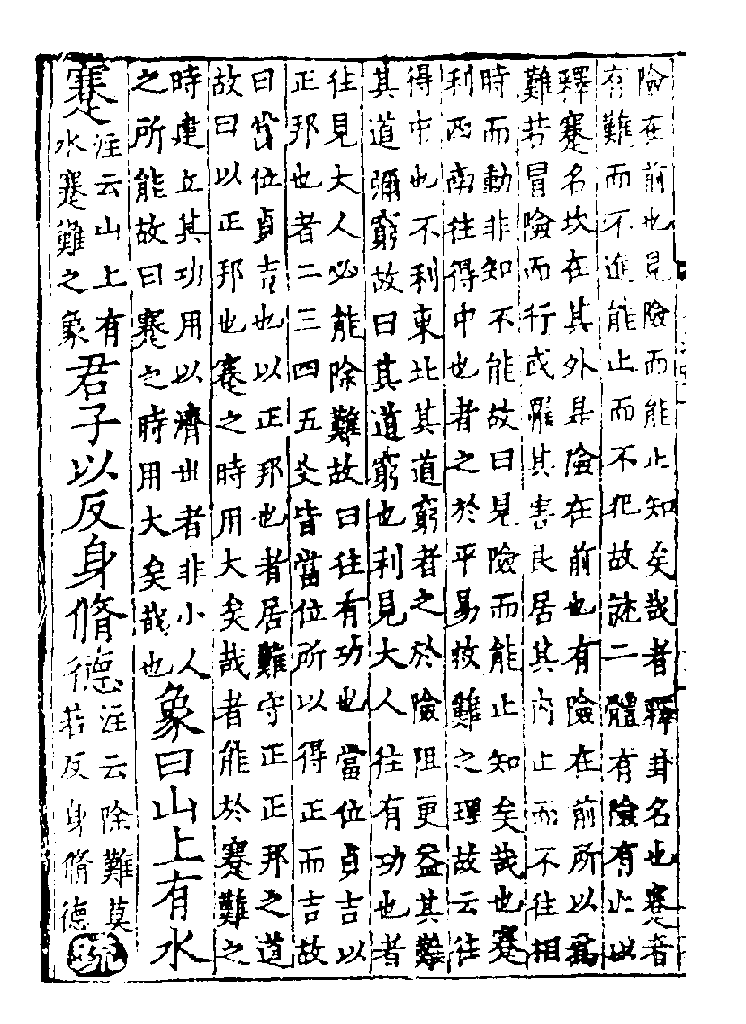 險在前也見險而能止知矣哉者釋卦名也蹇者
有難而不進能止而不犯故就二體有險有止以
釋蹇名坎在其外是險在前也有險在前所以為
難若冒險而行或罹其害艮居其内止而不往相
時而動非知不能故曰見險而能止知矣哉也蹇
利西南往得中也者之於平易救難之理故云往
得中也不利東北其道窮者之於險阻更益其難
其道彌窮故曰其道窮也利見大人往有功也者
往見大人必能除難故曰往有功也當位貞吉以
正邦也者二三四五爻皆當位所以得正而吉故
曰當位貞吉也以正邦也者居難守正正邦之道
故曰以正邦也蹇之時用大矣哉者能於蹇難之
時建立其功用以濟世者非小人
之所能故曰蹇之時用大矣哉也
象曰山上有水
蹇
注云山上有
水蹇難之象
君子以反身脩德
注云除難莫
若反身脩德
疏